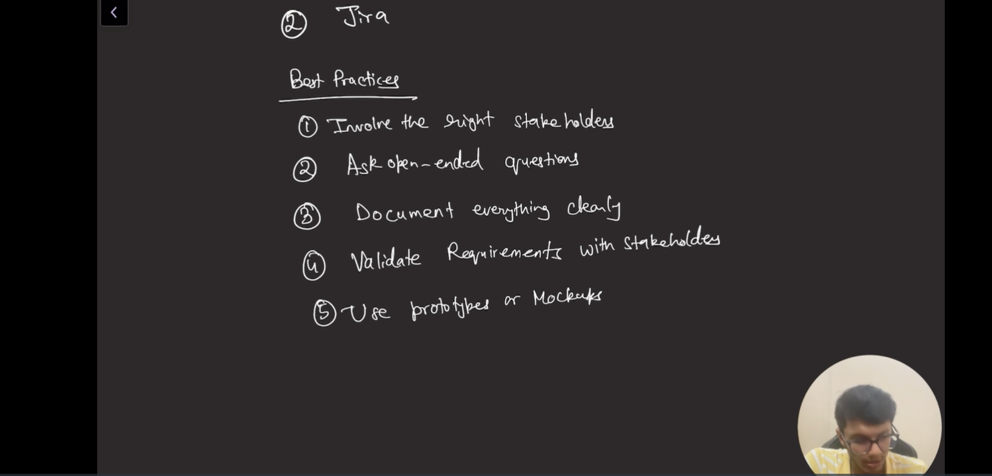 ② Jira
Best Practices
① Involve the right stakeholders
② Ask open-ended questions
③ Document everything clearly
④ Validate Requirements with stakeholders
⑤ Use prototypes or Mockups